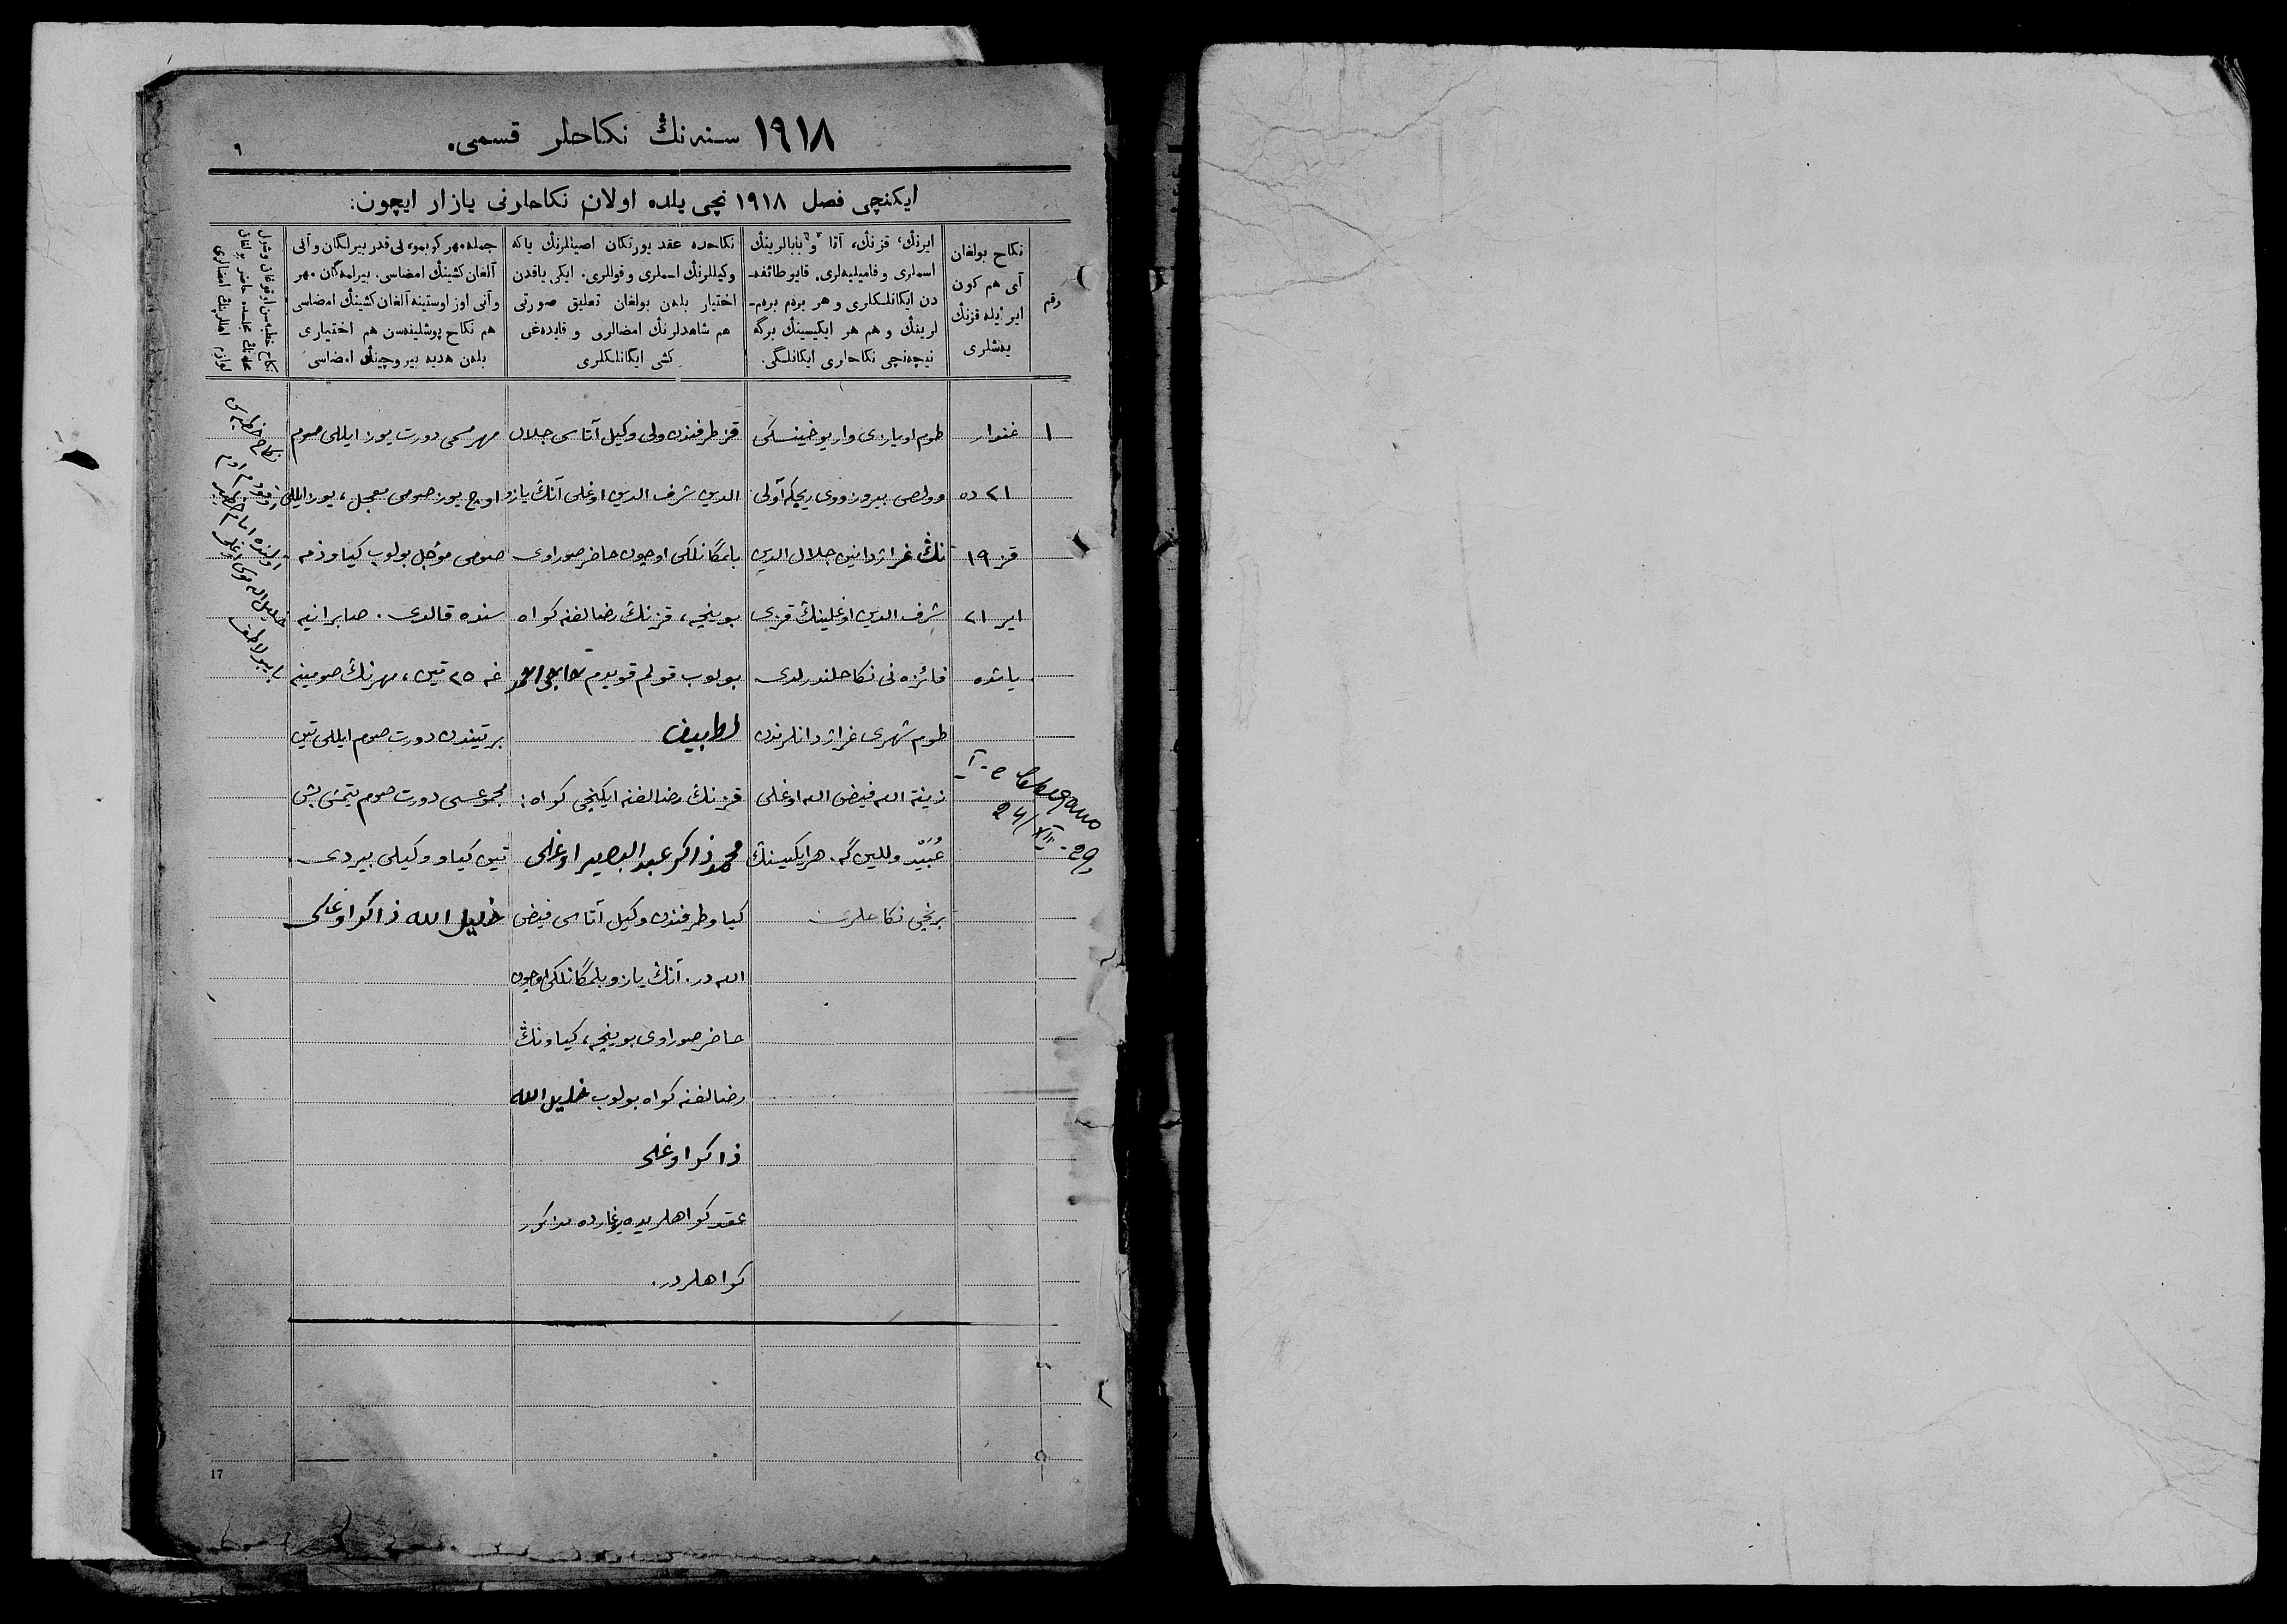 ١٩١٨ سنه‌نڭ نكاحلر قسمی.
٩
ایكنچی فصل ١٩١٨ نچی یلده اولان نكاحلرنی یازار ایچون:
رقم
نكاح بولغان
آی هم كون
ایر ایله قزنڭ
یه‌شلری
ایرنڭ، قزنڭ، آتا و بابالرینڭ
اسملری و فامیلیه‌لری. قایو طائفه‌ـ
دن ایكانلكلری و هر برم برم‌ـ
لرینڭ و هم هر ایكیسینڭ برگه
نیچه‌نچی نكاحلری ایكانلگی.
نكاحده عقد یورتكان اصیللرنڭ یاكه
وكیللرنڭ اسملری و قوللری. ایكی یاقدن
اختیار بله‌ن بولغان تعلیق صورتی
هم شاهدلرنڭ امضالری و قایده‌غی
كشی ایكانلكلری
جمله مهر كوبمو، نی قدر بیرلگان و آنی
آلغان كشینڭ امضاسی، بیرلمه‌گان مهر
وآنی اوز اوستینه آلغان كشینڭ امضاسی
هم نكاح پوشلینه‌سن هم اختیاری
بله‌ن هدیه بیروچینڭ امضاسی
نكاح خطبه‌سن اوقوغان وشول
محله‌نڭ مجلسده حاضر بولغان
لوازم اهلرینڭ امضالری
١
غنوار
٢١ ده
قز ١٩
ایر ٢١
یاشده
طوم اویازی واریوخینسكی
وولصی بیروزووی ریچكه آولی
نڭ غراژدانین جلال الدین
شرف الدین اوغلینڭ قزی
فائزه نی نكاحلندرلدی
طوم شهری غراژدانلرندن
زینة الله فیض الله اوغلی
وللین گه. هر ایكیسنڭ
برنچی نكاحلری
قز طرفندن ولی وكیل آتاسی جلال
الدین شرف الدین اوغلی آنڭ یازو
بلمگانلكی اوچون حاضر صوراوی
بوینچه، قزنڭ رضالغنه كواه
بولوب قولم قویدم
لطیف
قزنڭ رضالغنه ایكنچی كواه:
محمد ذاكر عبد البصیر اوغلی
كیاو طرفندن وكیل آتاسی فیض
الله در. آنڭ یازو بلمگانلكی اوچون
حاضر صوراوی بوینچه، كیاونڭ
رضالغنه كواه بولوب خلیل الله
ذاكر اوغلی
عقد كواهلریده یوغارده مذكور
كواهلردر.
مهر مسمی دورت یوز ایللی صوم
اوچ یوز صومی معجل، یوز ایللی
صومی مؤجل بولوب كیاو ذمه
سنده قالدی. صابرانیه
غه ٢٥ تین، مهرنڭ صومینه
بر تیندن دورت صوم ایللی تین
مجموعسی دورت صوم یتمش بش
تین كیاو وكیلی بیردی.
خلیل الله ذاكر اوغلی
نكاح خطبه سی
24/XII-29
17